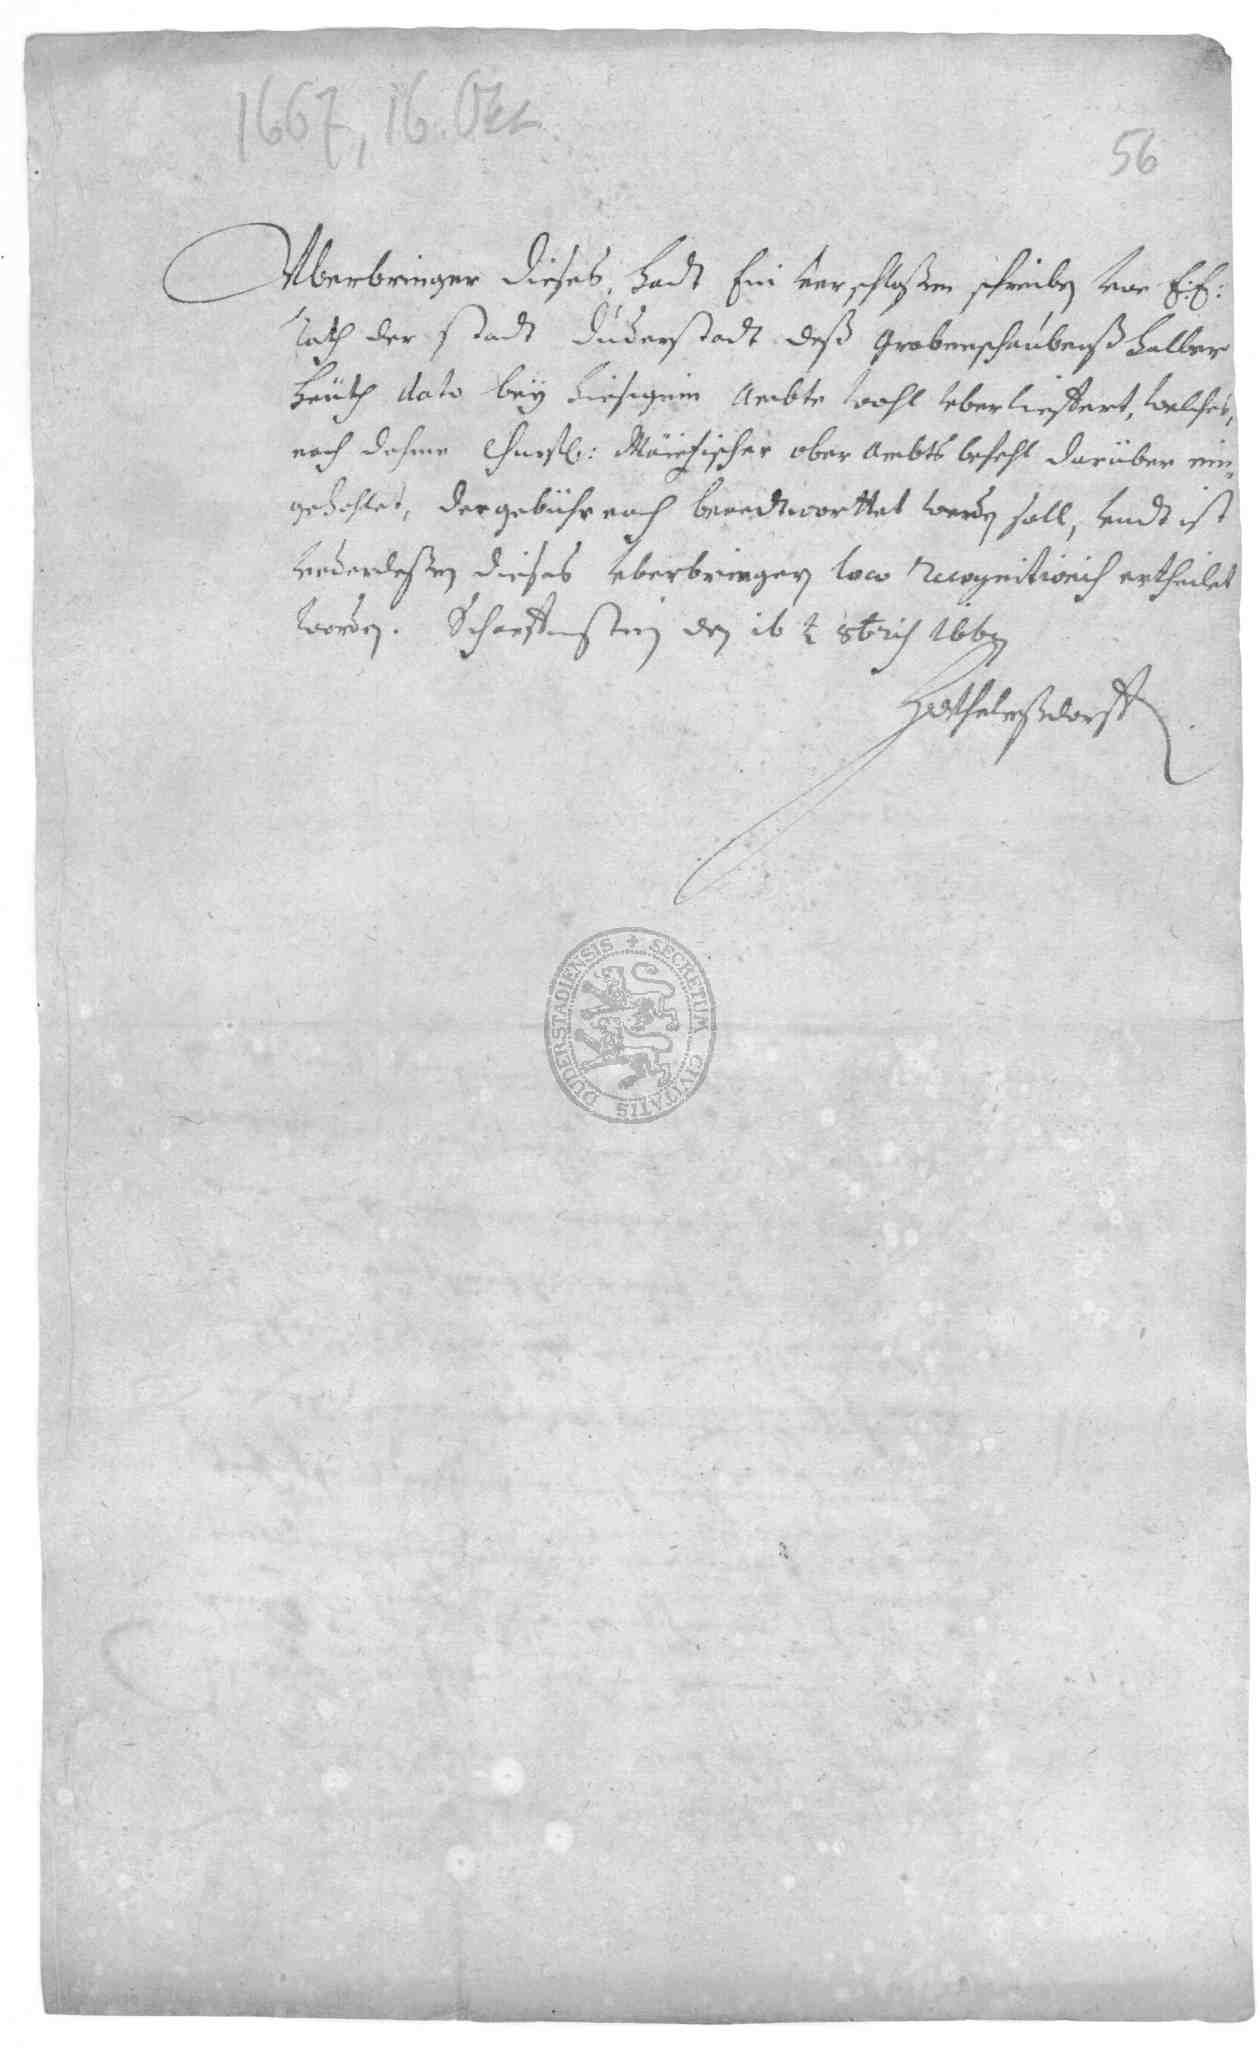 1667, 16. Okt.
56
Uberbringer dieses, hadt Ein verschloßen schreiben von E: E:
Rath der stadt Duderstadt deß Grabenschaubenß halber
heüth dato bey hiesigem Ambte wohl uberlieffert, welches,
nach dehme Churfl: Mäintzischer ober Ambts befehl darüber ein-
gehohlet, der gebühr nach beandtworttet werden soll, undt ist
unterdeßen dieses uberbringern loco Recognitionis ertheilet
worden. Scharffenstein den 16 t 8bris 1667
SECRETUM CIVITATIS DUDERSTADIENSIS